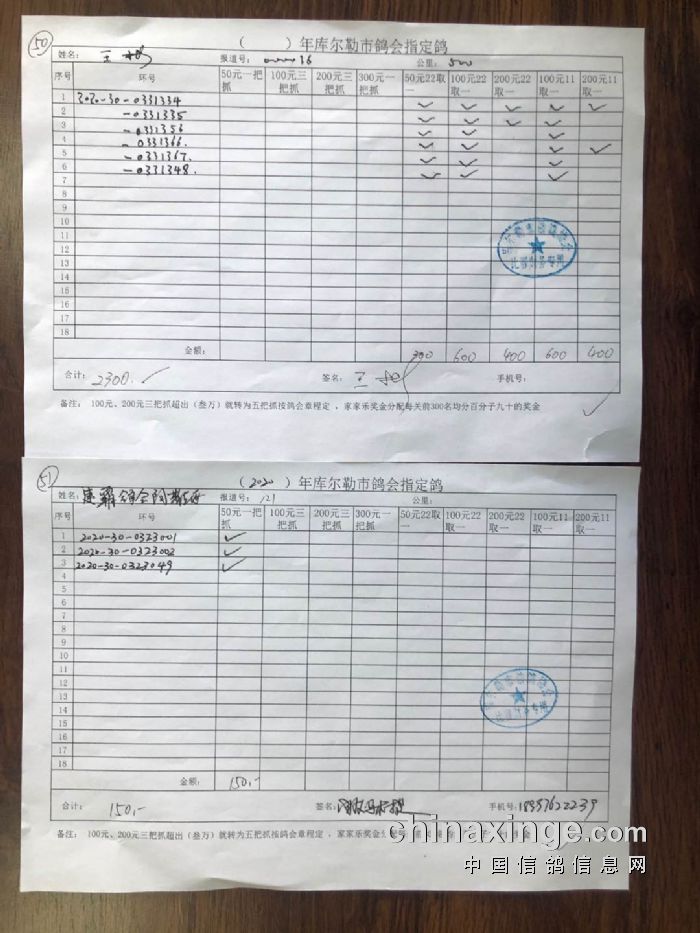 50
( ) 年库尔勒市鸽会指定鸽
姓名： 王 报道号： 16 公里： 500
序号 环号 50元一把抓 100元三把抓 200元三把抓 300元一把抓 50元22取一 100元22取一 200元22取一 100元11取一 200元11取一
1 2020-30-0331334 ✓ ✓ ✓ ✓ ✓
2 -0331335 ✓ ✓ ✓ ✓
3 -0331356 ✓ ✓ ✓
4 -0331366. ✓ ✓ ✓ ✓
5 -0331367. ✓ ✓ ✓
6 -0331348. ✓ ✓ ✓
7
8
9
10
11
12
13
14
15
16
17
18
金额： 300 600 400 600 400
合计： 2300. ✓ 签名： 王 手机号：
备注： 100元、200元三把抓超出（叁万）就转为五把抓按鸽会章程定，家家乐奖金分配每关前300名均分百分子九十的奖金 ✓
51
( 2020 ) 年库尔勒市鸽会指定鸽
姓名： 报道号： 121 公里：
序号 环号 50元一把抓 100元三把抓 200元三把抓 300元一把抓 50元22取一 100元22取一 200元22取一 100元11取一 200元11取一
1 2020-30-0323001 ✓
2 2020-30-0323002 ✓
3 2020-30-0323049 ✓
4
5
6
7
8
9
10
11
12
13
14
15
16
17
18
金额： 150.-
合计： 150.- 签名： 手机号： 18997622239
备注： 100元、200元三把抓超出（叁万）就转为五把抓按鸽会章程定，家家乐奖金分配
chinaxinge.com
中国信鸽信息网